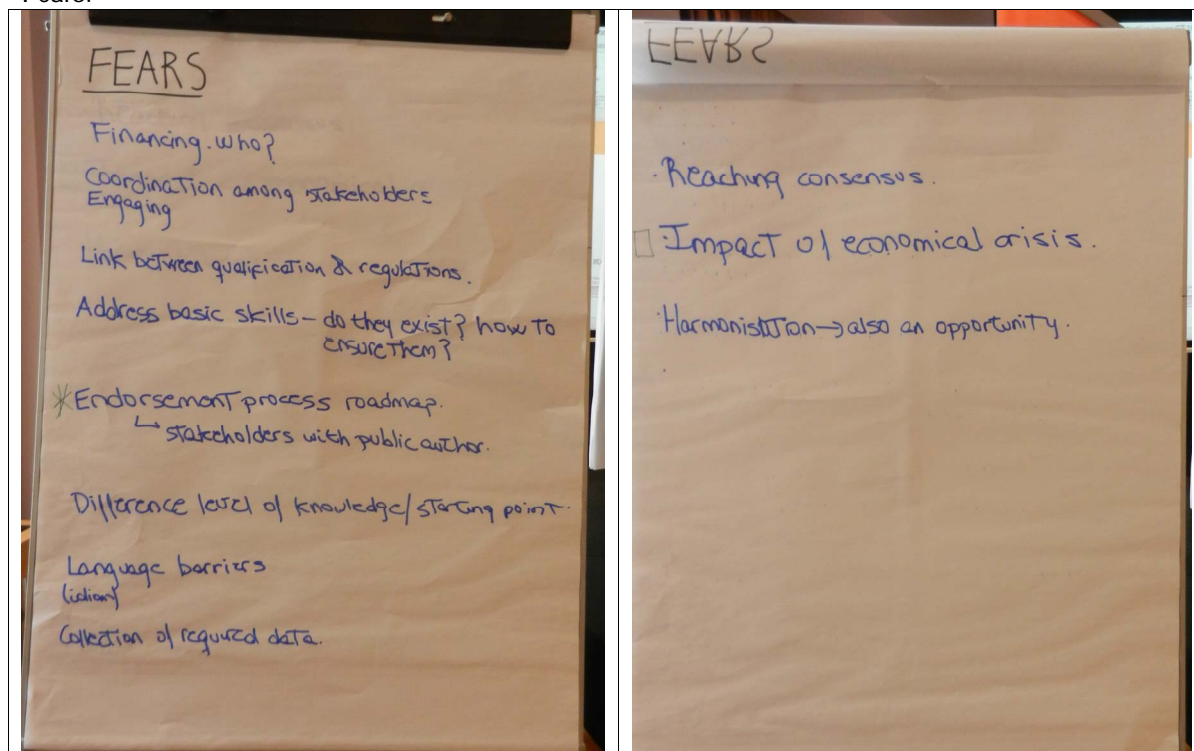 FEARS
Financing. who?
Coordination among stakeholders
Engaging
Link between qualification & regulations.
Address basic skills – do they exist? how to
ensure them?
*Endorsement process roadmap.
↳ stakeholders with public author.
Difference level of knowledge/starting point.
Language barriers
(idiom)
Collection of required data.
FEARS
·Reaching consensus.
·Impact of economical crisis.
·Harmonisation→also an opportunity.